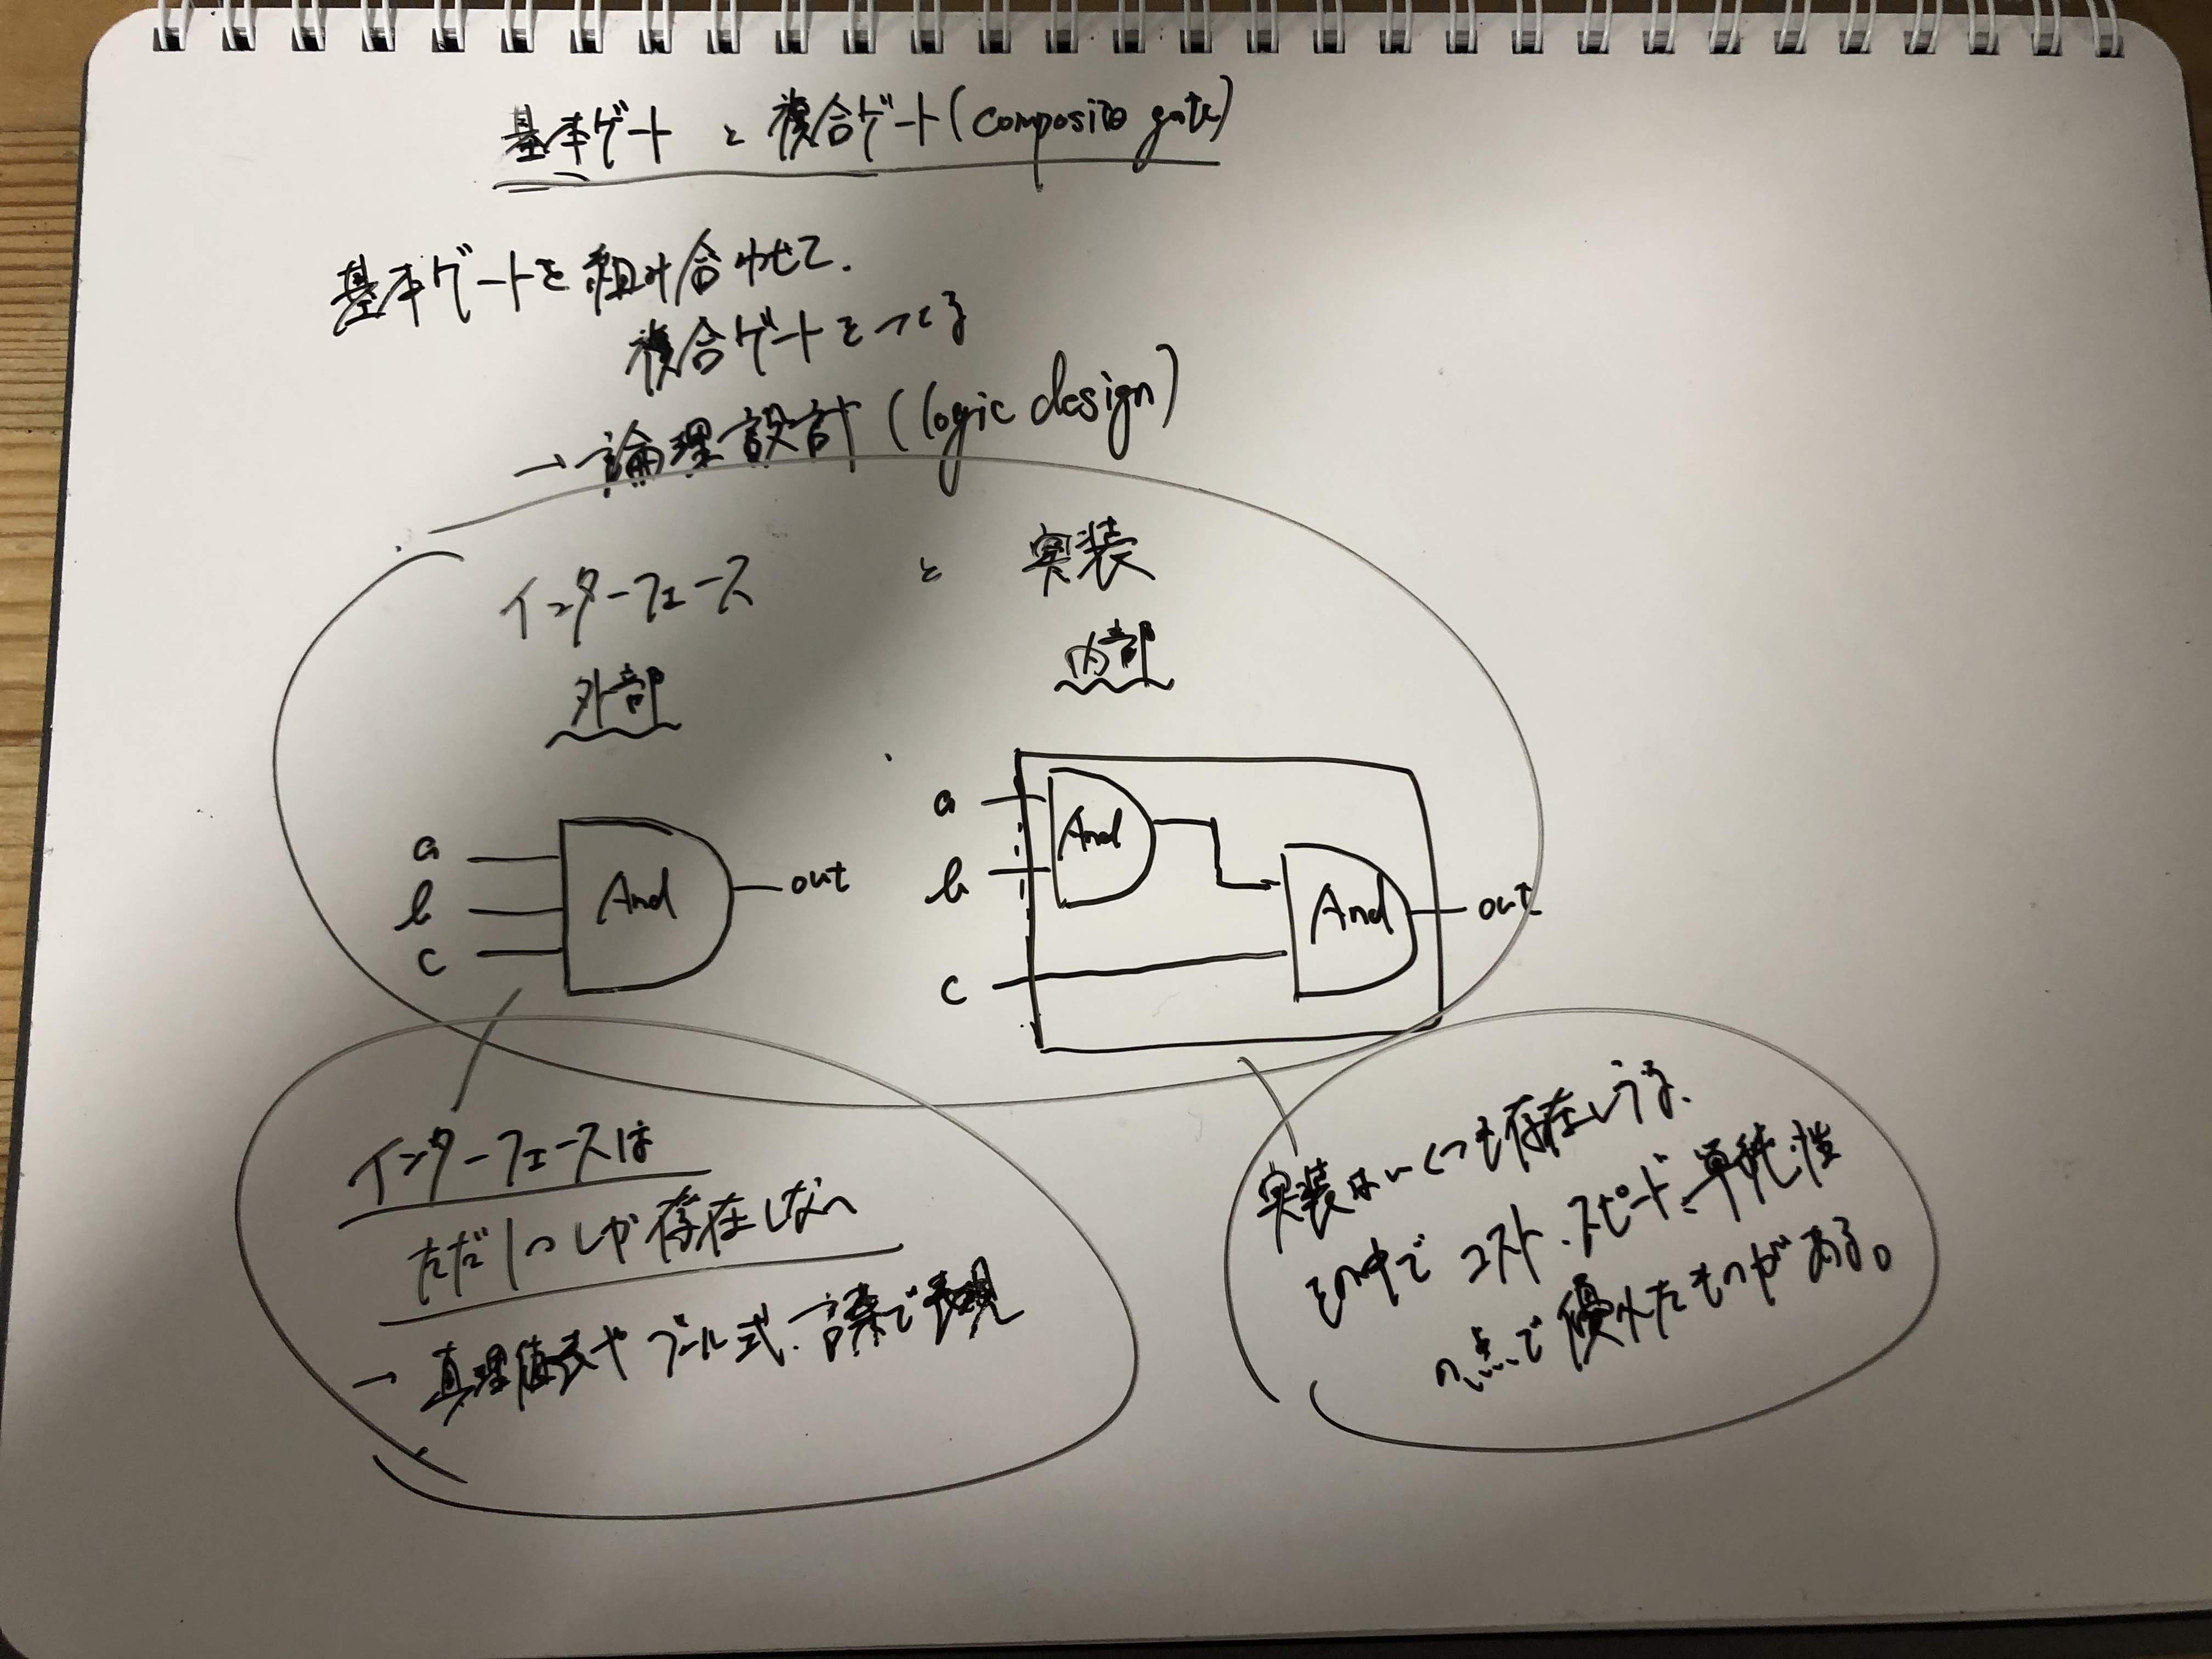 基本ゲート と 複合ゲート (composite gate)
基本ゲートを組み合わせて.
複合ゲートをつくる
→ 論理設計 (logic design)
インターフェース と 実装
外部 内部
a
b
c
And
out
a
b
c
And
And
out
インターフェースは
ただ1つしか存在しない
→ 真理値表や ブール式. 言葉で表現
実装はいくつも存在しうる.
その中で コスト.スピード、単純性
の点で優れたものがある。